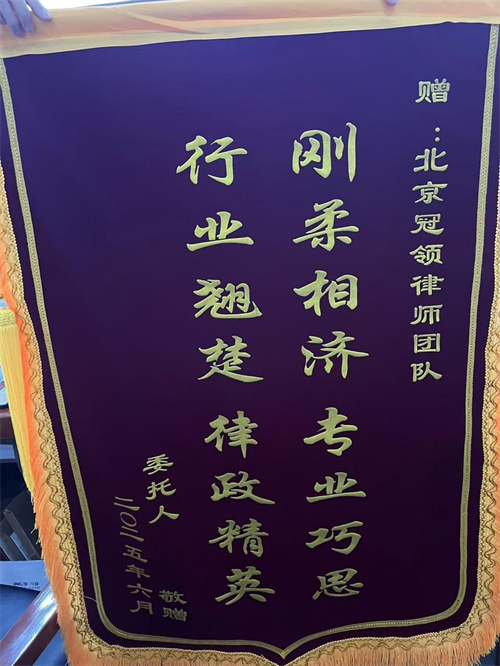 赠：北京冠领律师团队
刚柔相济 专业巧思
行业翘楚 律政精英
委托人 敬赠
二〇二五年六月